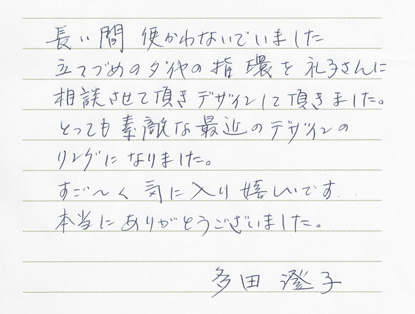 長い間 使かわないでいました
立てづめのダイヤの指環を 礼子さんに
相談させて頂きデザインして頂きました。
とっても素敵な最近のデザインの
リングになりました。
すご〜く気に入り嬉しいです
本当にありがとうございました。
多田 澄子